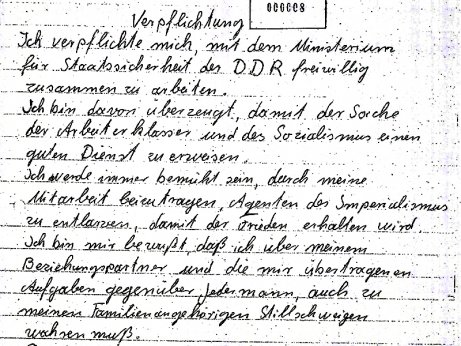 Verpflichtung
000008
Ich verpflichte mich, mit dem Ministerium
für Staatssicherheit der DDR freiwillig
zusammen zu arbeiten.
Ich bin davon überzeugt, damit der Sache
der Arbeiterklasse und des Sozialismus einen
guten Dienst zu erweisen.
Ich werde immer bemüht sein, durch meine
Mitarbeit beizutragen, Agenten des Imperialismus
zu entlarven, damit der Frieden erhalten wird
Ich bin mir bewußt, daß ich über meinem
Beziehungspartner und die mir übertragenen
Aufgaben gegenüber Jedermann, auch zu
meinen Familienangehörigen Stillschweigen
wahren muß.